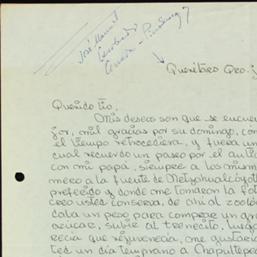 José Manuel
Querétaro Qro.
Querido tío.
Mis deseos son que se encue
jor, mil gracias por su domingo, con
el tiempo retrocediera, y fuera un
cual recuerdo un paseo por el anti
con mi papá, siempre a los mismo
mero a la fuente de Netzahualcóyot
preferido y donde me tomaron la fot
creo usted conserva, de ahí al zooló
daba un peso para comprar un gr
azúcar, subir al trenecito, luego
recía que rejuvenecía, me gustaría
ted un día temprano a Chapultepe